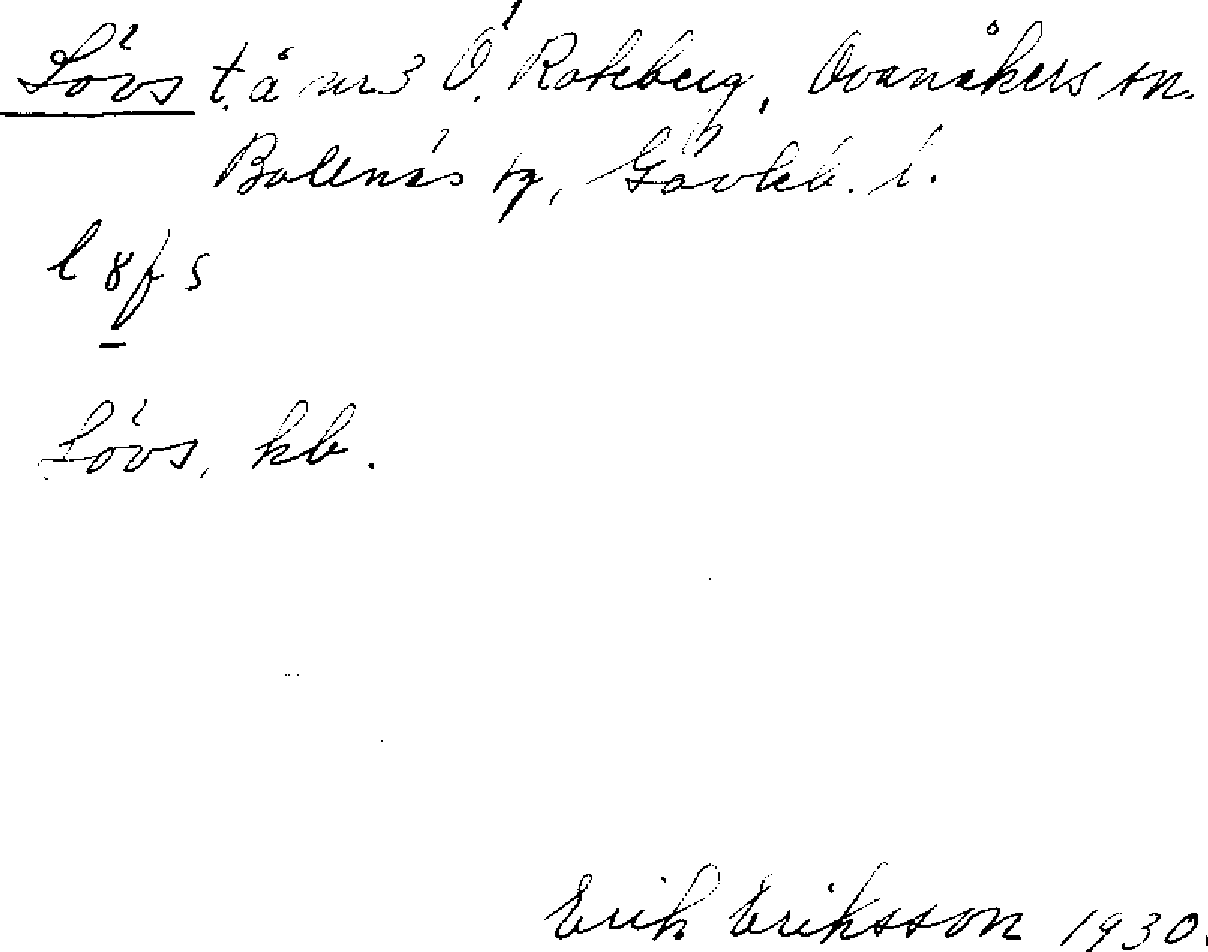 Lövs t. å nr 3 Ö. Roteberg, Ovanåkers sn.
Bollnäs tg, Gävleb. l.
l8fs
Lövs, kb.
Erik Eriksson 1930.